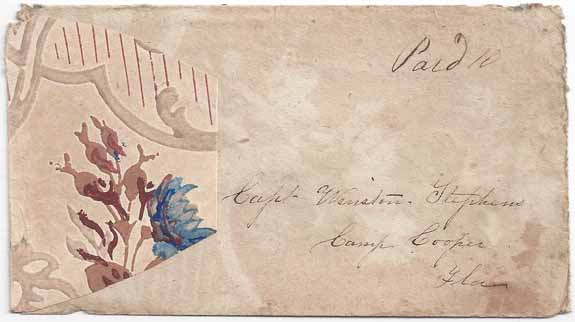 Paid 10
Capt Winston Stephens
Camp Cooper
Fla